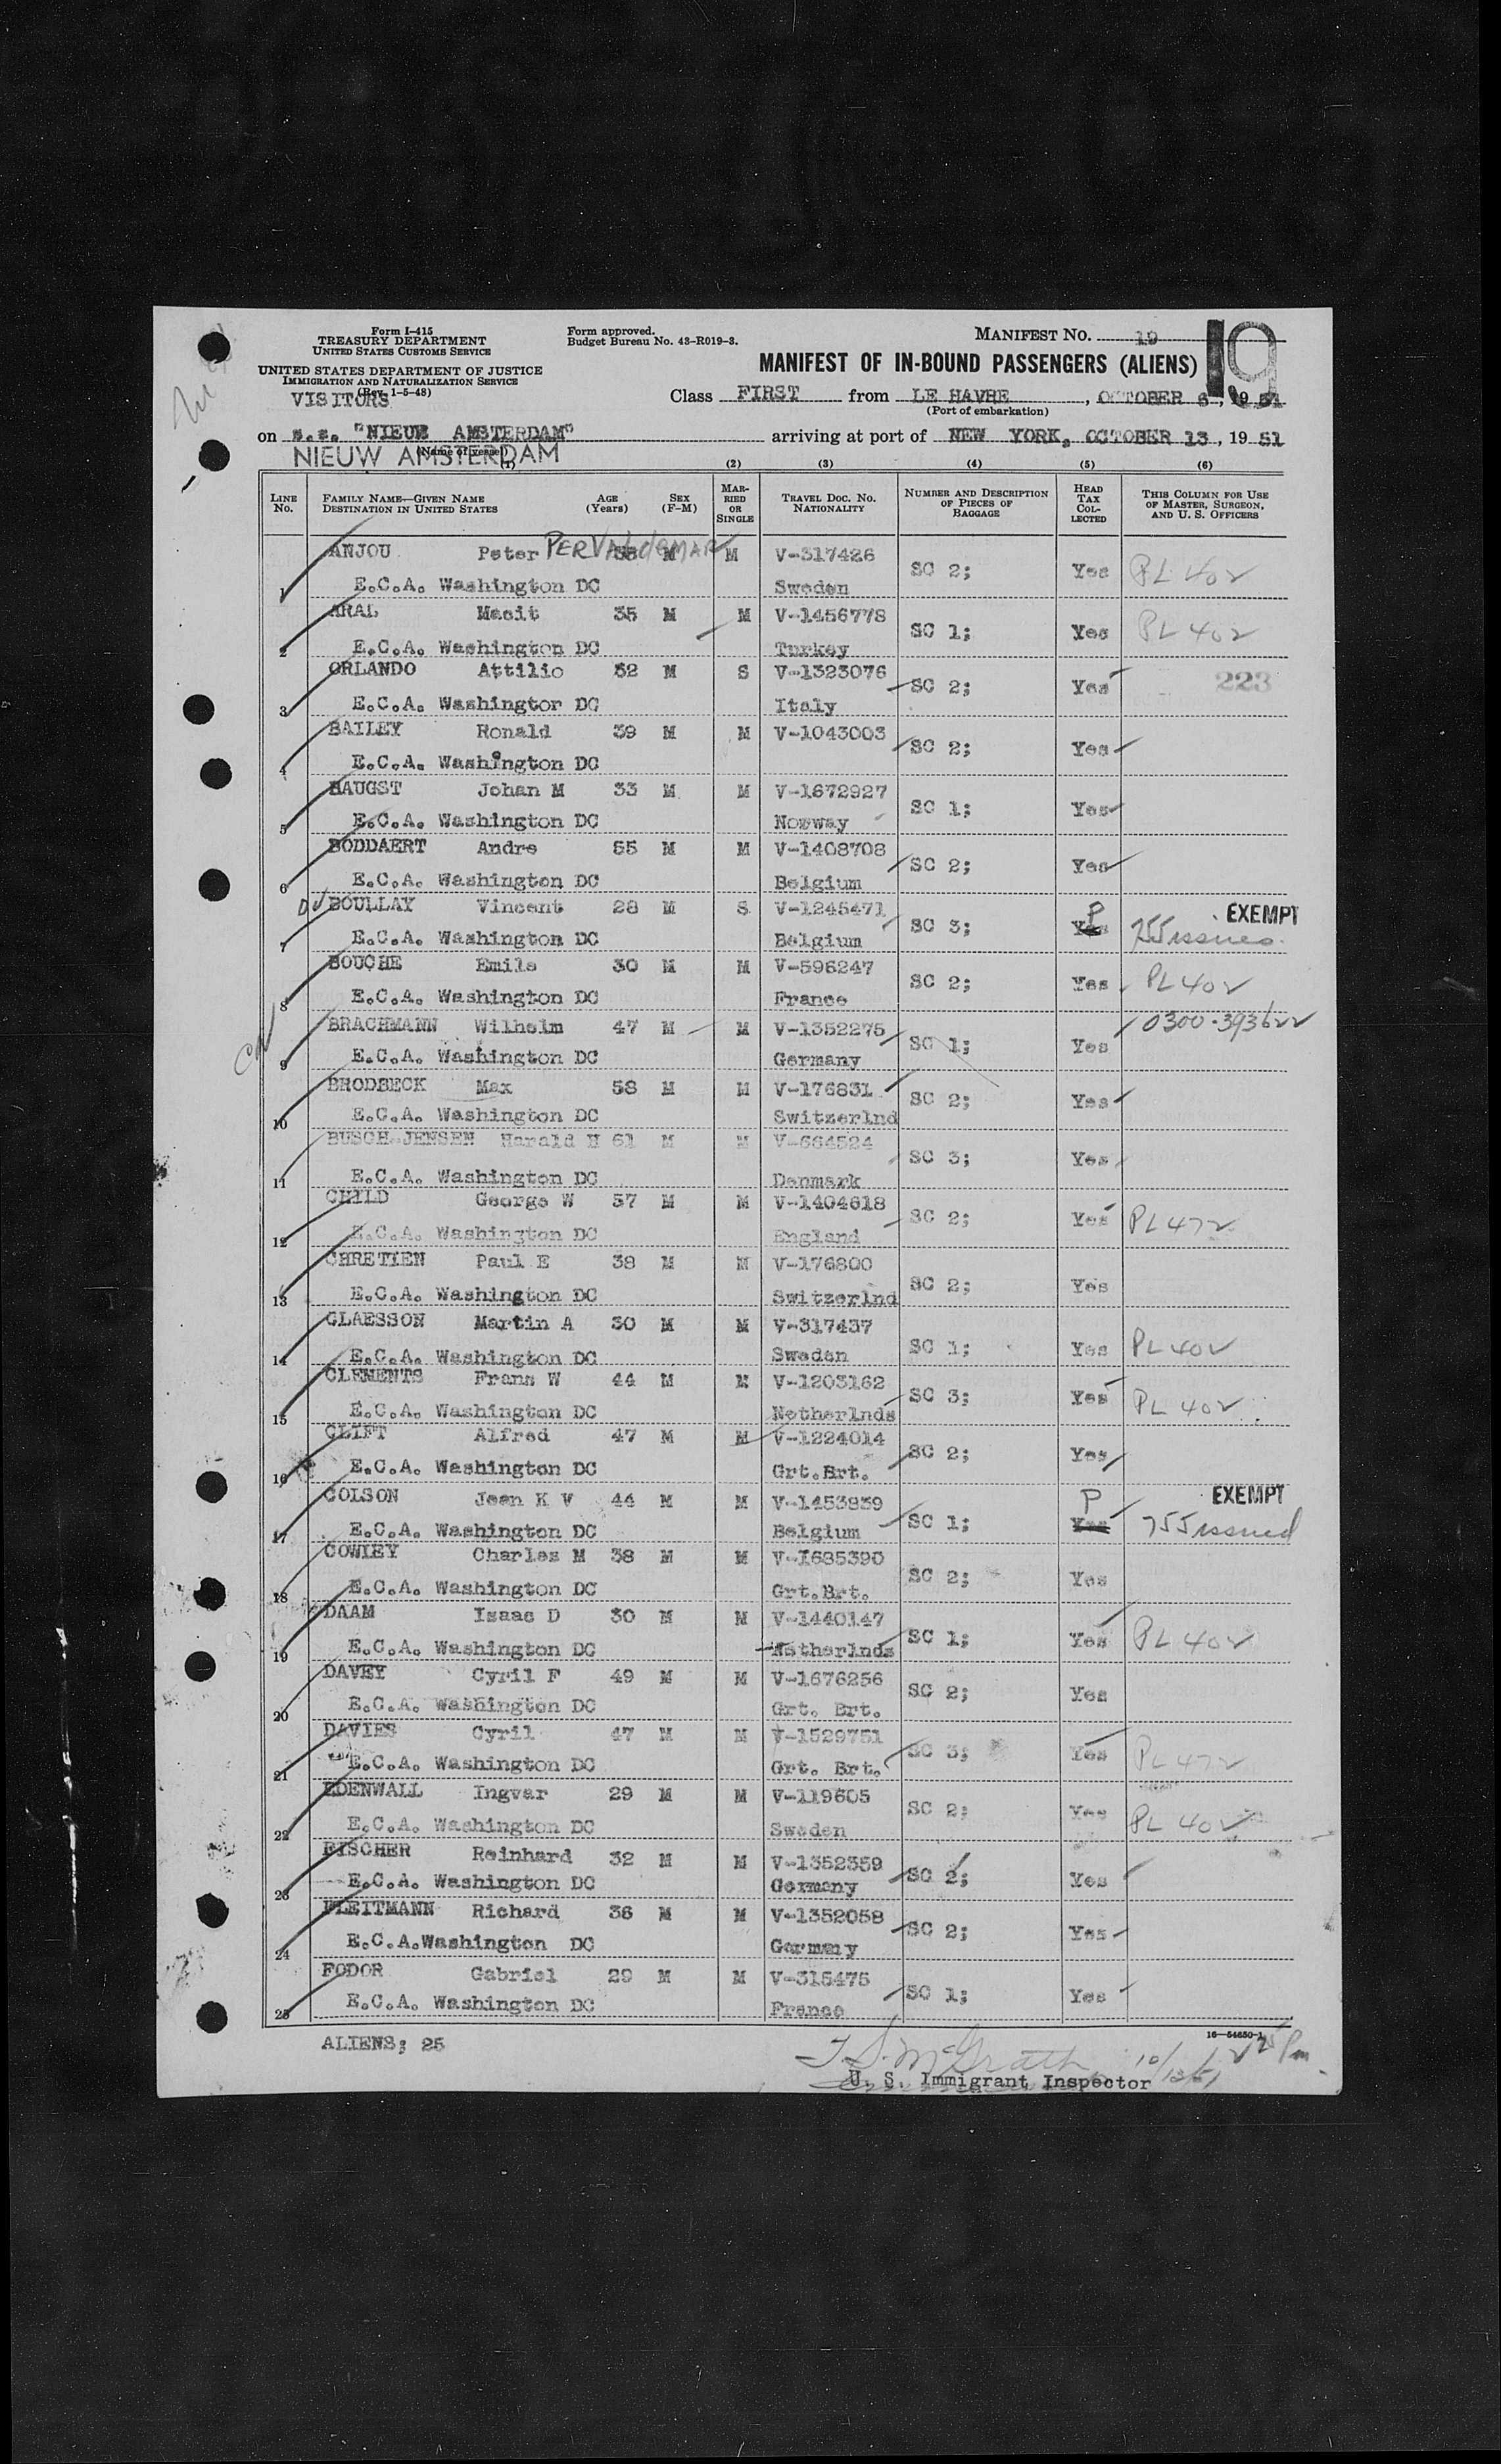 Form I-415
TREASURY DEPARTMENT
UNITED STATES CUSTOMS SERVICE
UNITED STATES DEPARTMENT OF JUSTICE
IMMIGRATION AND NATURALIZATION SERVICE
(Rev. 1-5-48)
VISITORS
Form approved.
Budget Bureau No. 43-R019-3.
MANIFEST NO. 19
19
MANIFEST OF IN-BOUND PASSENGERS (ALIENS)
Class FIRST from LE HAVRE, OCTOBER 6, 1951
(Port of embarkation)
on s.s. "NIEUW AMSTERDAM" arriving at port of NEW YORK, OCTOBER 13, 1951
(Name of vessel)
NIEUW AMSTERDAM
(1) (2) (3) (4) (5) (6)
LINE NO. FAMILY NAME—GIVEN NAME DESTINATION IN UNITED STATES AGE (Years) SEX (F-M) MARRIED OR SINGLE TRAVEL DOC. NO. NATIONALITY NUMBER AND DESCRIPTION OF PIECES OF BAGGAGE HEAD TAX COLLECTED THIS COLUMN FOR USE OF MASTER, SURGEON, AND U. S. OFFICERS
ANJOU Peter PER VALDEMAR 38 M M V-317426
1 E.C.A. Washington DC Sweden SC 2; Yes PL 402
ARAL Masit 35 M M V-1456778
2 E.C.A. Washington DC Turkey SC 1; Yes PL 402
ORLANDO Attilio 32 M S V-1323076
3 E.C.A. Washingtor DC Italy SC 2; Yes 223
BAILEY Ronald 39 M M V-1043003
4 E.C.A. Washington DC SC 2; Yes
HAUGST Johan M 33 M M V-1672927
5 E.C.A. Washington DC Norway SC 1; Yes
BODDAERT Andre 55 M M V-1408708
6 E.C.A. Washington DC Belgium SC 2; Yes
BOULLAY Vincent 28 M S V-1245471
7 E.C.A. Washington DC Belgium SC 3; P Yes EXEMPT 755 issued
BOUCHE Emile 30 M M V-596247
8 E.C.A. Washington DC France SC 2; Yes PL 402
BRACHMANN Wilhelm 47 M M V-1352275
9 E.C.A. Washington DC Germany SC 1; Yes 0300-393622
BRODBECK Max 58 M M V-176831
10 E.C.A. Washington DC Switzerlnd SC 2; Yes
BUSCH JENSEN Harald H 61 M M V-664524
11 E.C.A. Washington DC Denmark SC 3; Yes
CHILD George W 57 M M V-1404618
12 E.C.A. Washington DC England SC 2; Yes PL 472
CHRETIEN Paul E 38 M M V-176800
13 E.C.A. Washington DC Switzerlnd SC 2; Yes
CLAESSON Martin A 30 M M V-317437
14 E.C.A. Washington DC Sweden SC 1; Yes PL 402
CLEMENTS Frans W 44 M M V-1203162
15 E.C.A. Washington DC Netherlnds SC 3; Yes PL 402
CLIFT Alfred 47 M M V-1224014
16 E.C.A. Washington DC Grt.Brt. SC 2; Yes
COLSON Jean K V 44 M M V-1453839
17 E.C.A. Washington DC Belgium SC 1; P Yes EXEMPT 755 issued
COWLEY Charles M 38 M M V-1685390
18 E.C.A. Washington DC Grt.Brt. SC 2; Yes
DAAM Isaac D 30 M M V-1440147
19 E.C.A. Washington DC Netherlnds SC 1; Yes PL 402
DAVEY Cyril F 49 M M V-1676256
20 E.C.A. Washington DC Grt. Brt. SC 2; Yes
DAVIES Cyril 47 M M V-1529751
21 E.C.A. Washington DC Grt. Brt. SC 3; Yes PL 472
EDENWALL Ingvar 29 M M V-119605
22 E.C.A. Washington DC Sweden SC 2; Yes PL 402
FISCHER Reinhard 32 M M V-1352359
23 E.C.A. Washington DC Germany SC 2; Yes
FLEITMANN Richard 36 M M V-1352058
24 E.C.A.Washington DC Germany SC 2; Yes
FODOR Gabriel 29 M M V-315475
25 E.C.A. Washington DC France SC 1; Yes
ALIENS; 25
16—54650-1
T. S. McGrath
U. S. Immigrant Inspector